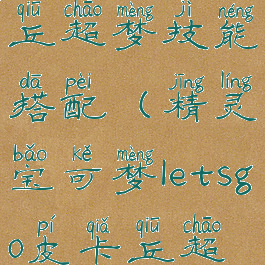 qiū chāo mèng jì néng
丘超梦技能
dā pèi jīng líng
搭配(精灵
bǎo kě mèng
宝可梦letsg
pí qiǎ qiū chāo
o皮卡丘超